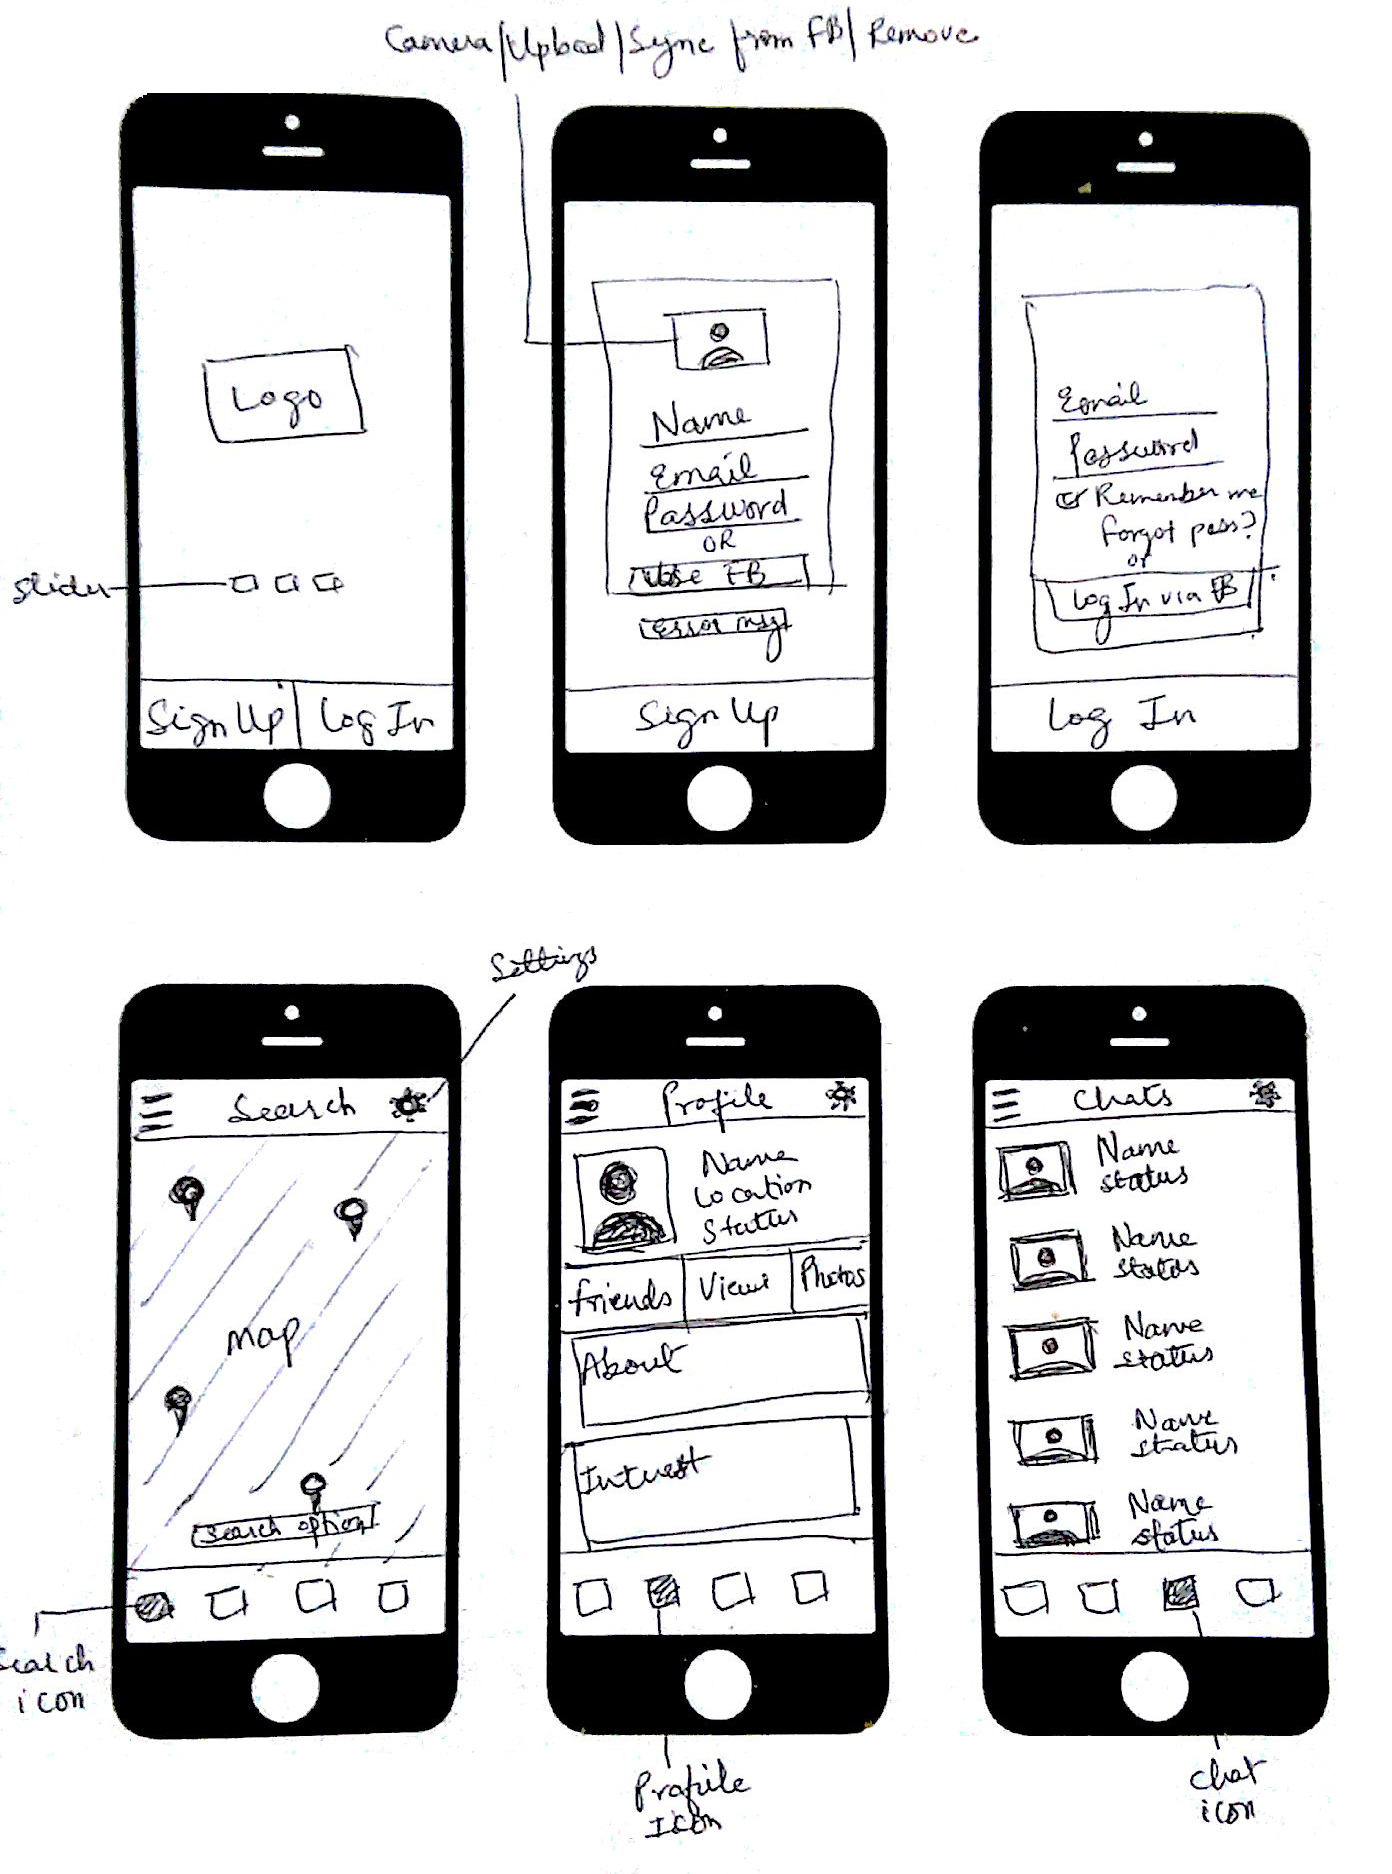 Camera/Upload/Sync from FB/Remove
Logo
Slider
Sign Up
Log In
Name
Email
Password
OR
Use FB
Error msg
Sign Up
Email
Password
Remember me
forgot pass?
or
Log In via FB
Log In
Settings
Search
Map
Search option
Search
icon
Profile
Name
Location
Status
friends
View
Photos
About
Interest
Profile
Icon
Chats
Name
status
Name
status
Name
status
Name
status
Name
status
Chat
icon